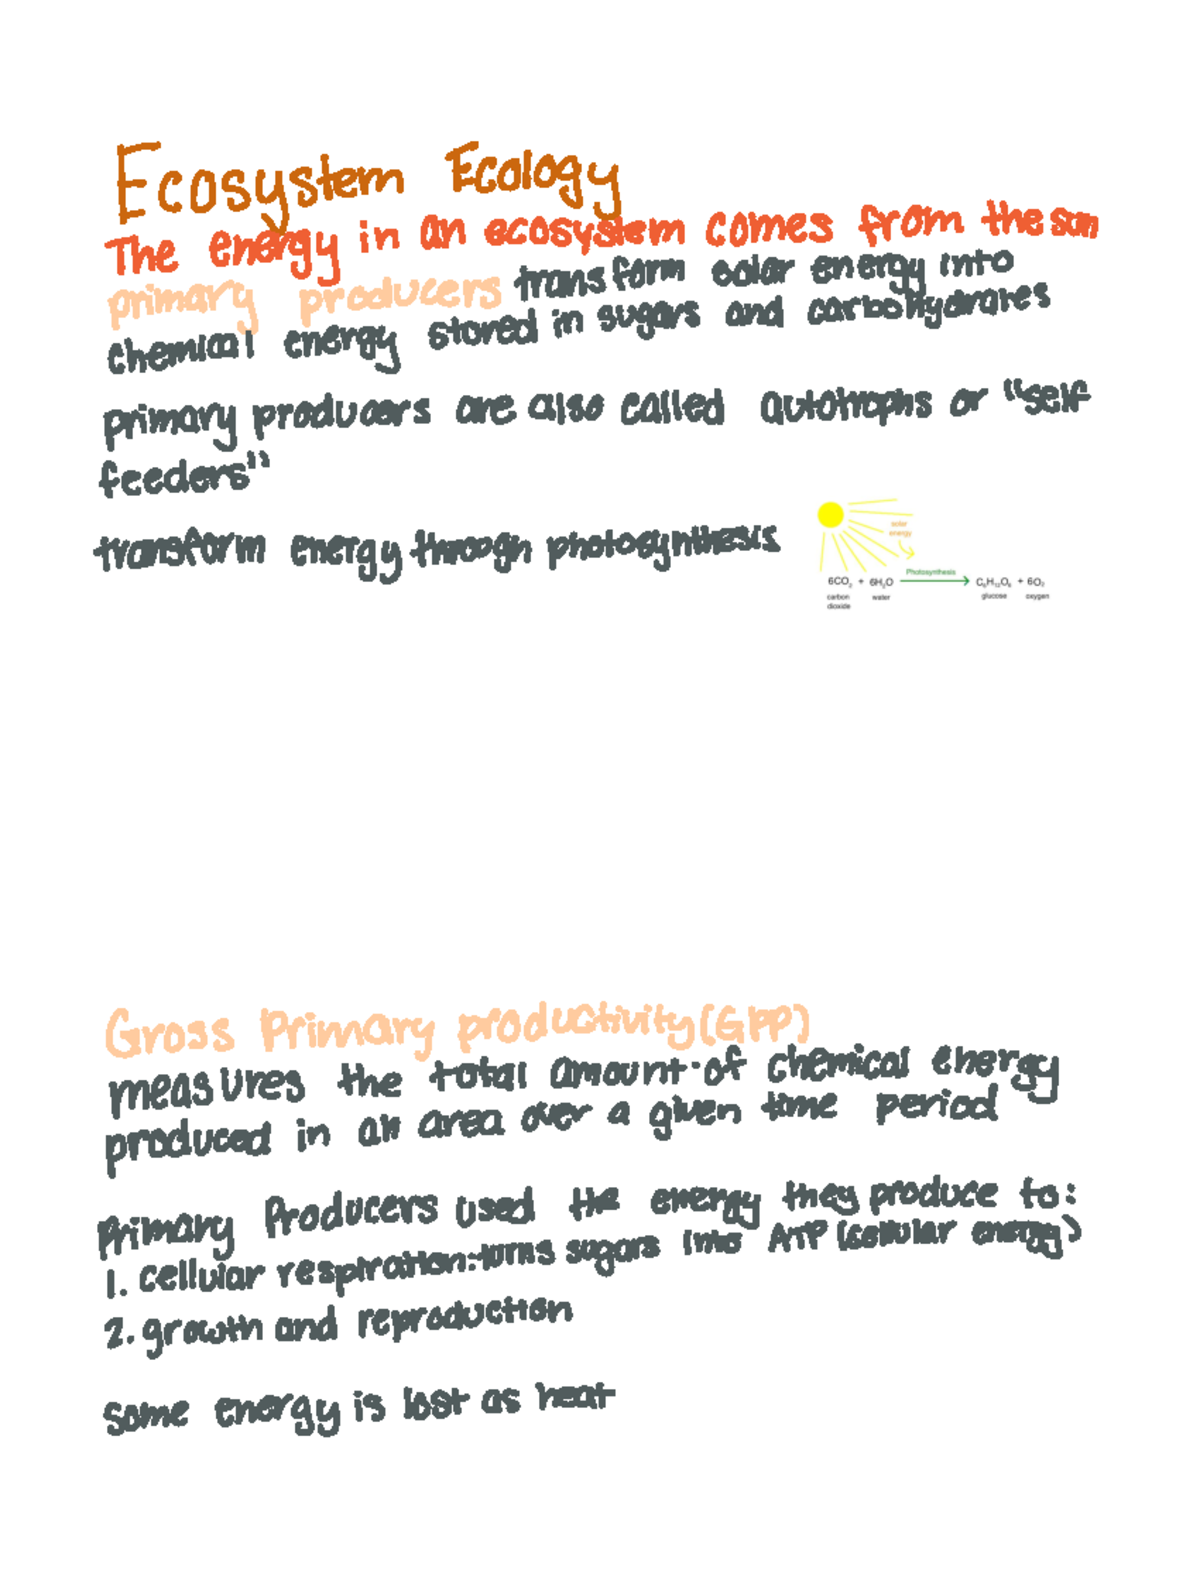 Ecosystem Ecology
The energy in an ecosystem comes from the sun
primary producers transform solar energy into
chemical energy stored in sugars and carbohydrates
primary producers are also called autotrophs or "self
feeders"
transform energy through photosynthesis
solar
energy
Photosynthesis
6CO₂ + 6H₂O → C₆H₁₂O₆ + 6O₂
carbon dioxide water glucose oxygen
Gross Primary productivity (GPP)
measures the total amount of chemical energy
produced in an area over a given time period
Primary Producers used the energy they produce to:
1. cellular respiration: turns sugars into ATP (cellular energy)
2. growth and reproduction
some energy is lost as heat